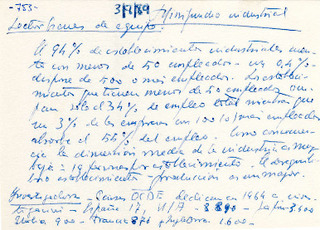 -753-
3/7/89 Minifundio industrial
Sector bienes de equipo.
El 94% de establecimientos industriales cuenta
con menos de 50 empleados - un 0,4%
dispone de 500 o más empleados. Los establecimientos
que tienen menos de 50 empleados ocupan
solo el 34% de empleo total mientras que
un 3% de las empresas con 100 (o) más empleados
absorbe el 54% del empleo. Como consecuencia
la dimensión media de la industria es muy
baja: 19 personas por establecimiento. El
establecimiento - producción es aun mayor.
Investigadores - Países OCDE dedican en 1964 a
España 12, U/A - 8.890 - 3.600
900 - Francia 870 e Inglaterra 1.600 -